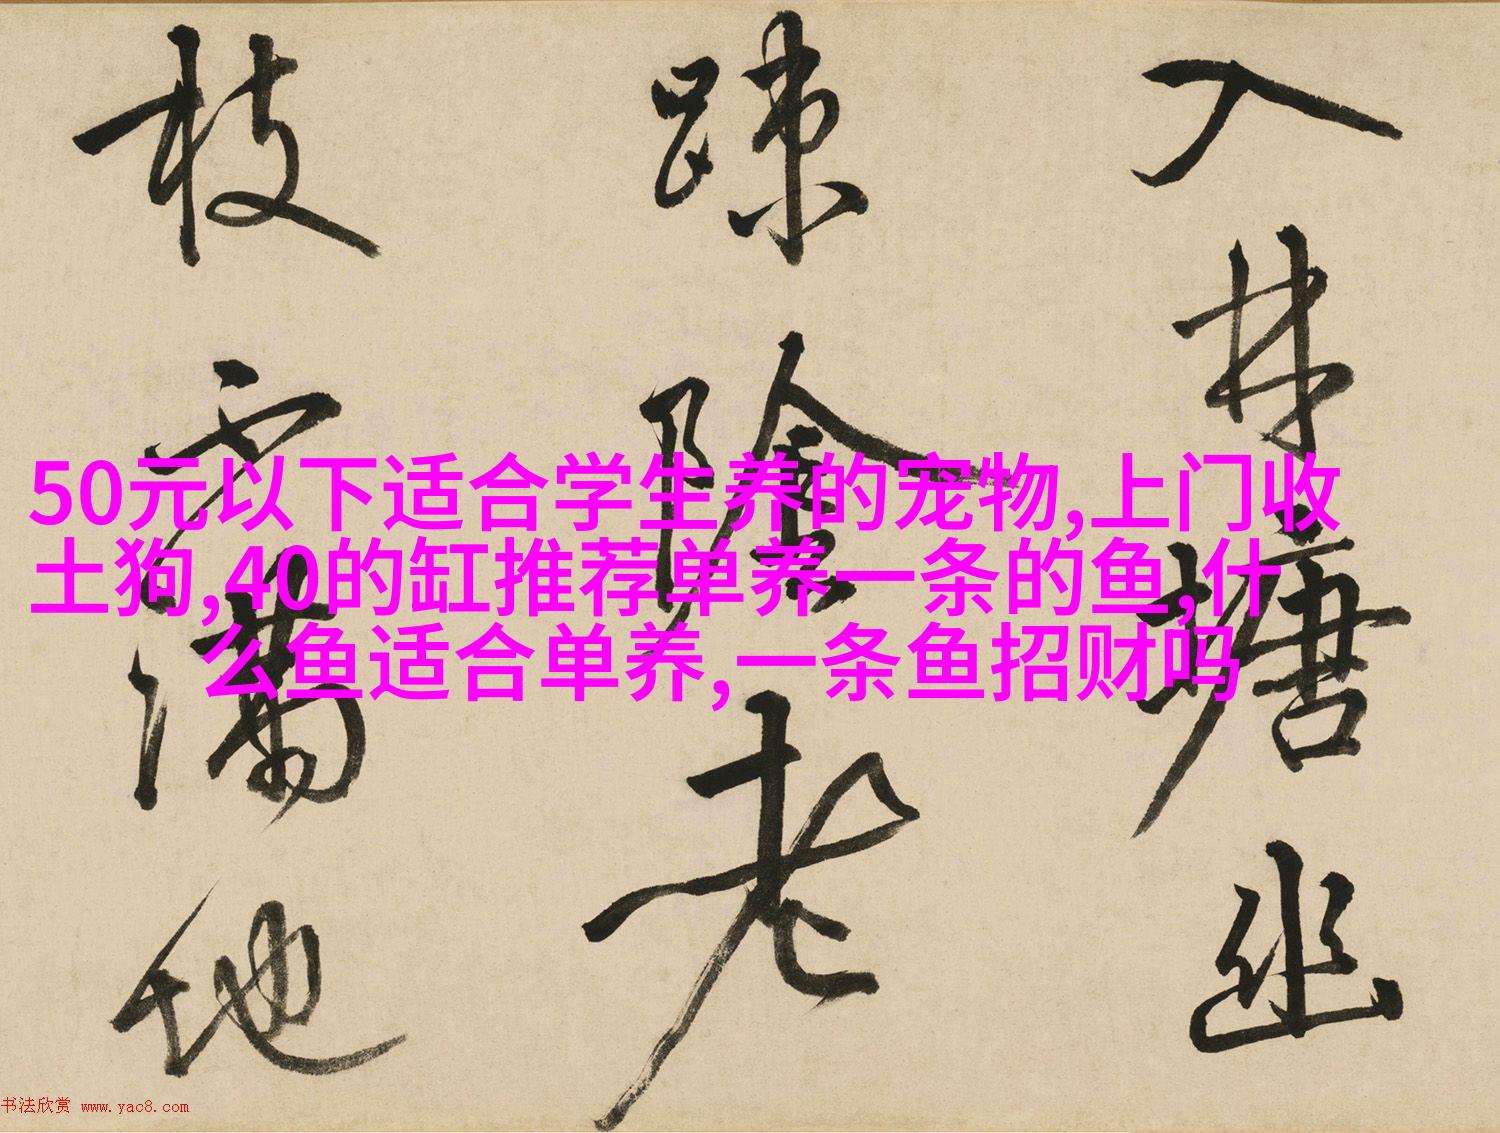 50元以下适合学生养的宠物,上门收
土狗,40的缸推荐单养一条的鱼,什
么鱼适合单养,一条鱼招财吗
入林塘幽
踈陰老
枝滿地
书法欣赏 www.yac8.com